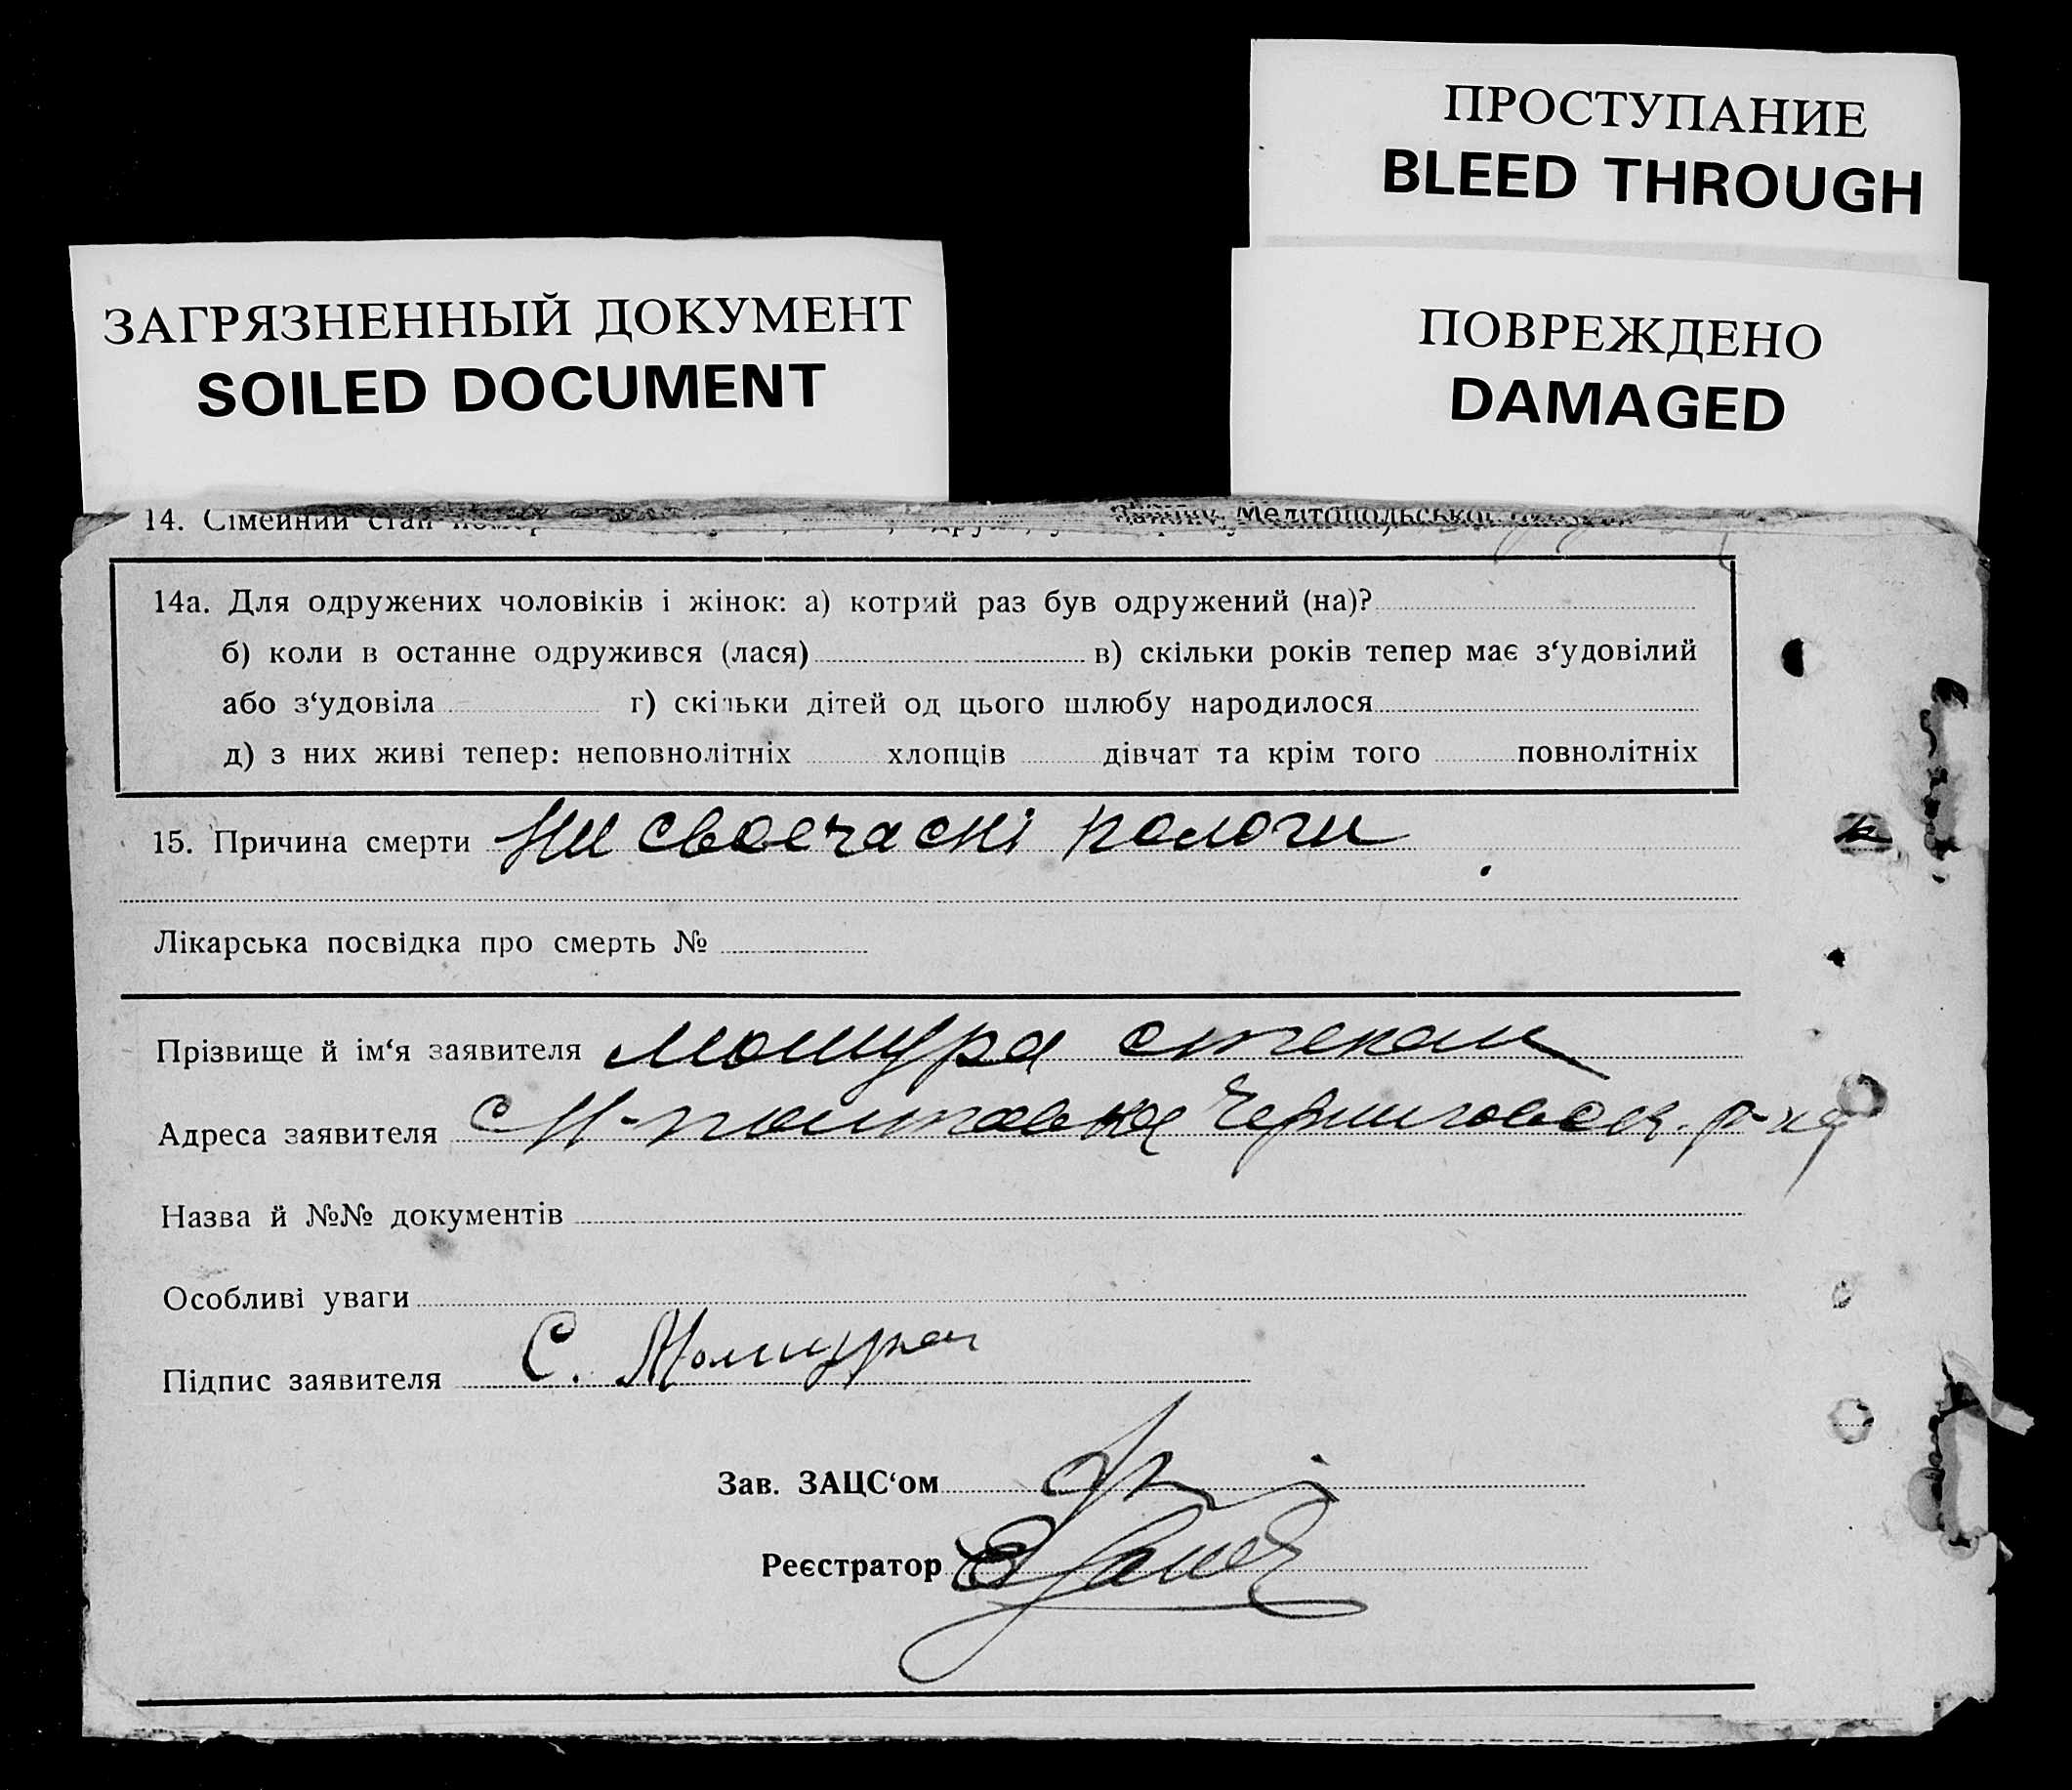 ПРОСТУПАНИЕ
BLEED THROUGH
ЗАГРЯЗНЕННЫЙ ДОКУМЕНТ
SOILED DOCUMENT
ПОВРЕЖДЕНО
DAMAGED
14. Сімейний стан Мелітопольської
14а. Для одружених чоловіків і жінок: а) котрий раз був одружений (на)?
б) коли в останне одружився (лася) в) скільки років тепер має з‘удовілий
або з‘удовіла г) скільки дітей од цього шлюбу народилося
д) з них живі тепер: неповнолітніх хлопців дівчат та крім того повнолітніх
15. Причина смерти Ни своечасні пологи
Лікарська посвідка про смерть №
Прізвище й ім‘я заявителя Мошура Степан
Адреса заявителя с Н-полтавка Черниговск. р-на
Назва й №№ документів
Особливі уваги
Підпис заявителя С. Мошура
Зав. ЗАЦС‘ом
Реєстратор